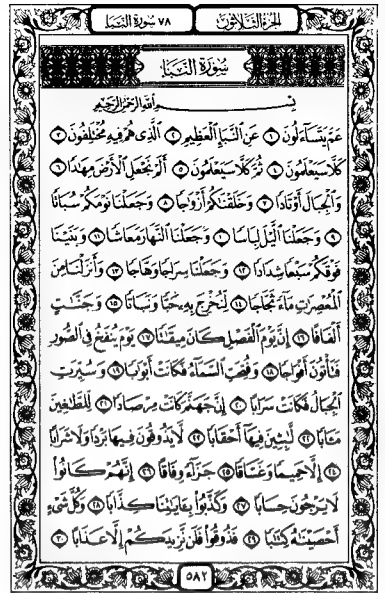 الجزء الثلاثون
٧٨ سورة النبإ
سُورَةُ النَّبَإِ
بِسْمِ اللَّهِ الرَّحْمَٰنِ الرَّحِيمِ
عَمَّ يَتَسَآءَلُونَ ١ عَنِ ٱلنَّبَإِ ٱلْعَظِيمِ ٢ ٱلَّذِى هُمْ فِيهِ مُخْتَلِفُونَ ٣
كَلَّا سَيَعْلَمُونَ ٤ ثُمَّ كَلَّا سَيَعْلَمُونَ ٥ أَلَمْ نَجْعَلِ ٱلْأَرْضَ مِهَٰدًا ٦
وَٱلْجِبَالَ أَوْتَادًا ٧ وَخَلَقْنَٰكُمْ أَزْوَٰجًا ٨ وَجَعَلْنَا نَوْمَكُمْ سُبَاتًا
٩ وَجَعَلْنَا ٱلَّيْلَ لِبَاسًا ١٠ وَجَعَلْنَا ٱلنَّهَارَ مَعَاشًا ١١ وَبَنَيْنَا
فَوْقَكُمْ سَبْعًا شِدَادًا ١٢ وَجَعَلْنَا سِرَاجًا وَهَّاجًا ١٣ وَأَنزَلْنَا مِنَ
ٱلْمُعْصِرَٰتِ مَآءً ثَجَّاجًا ١٤ لِّنُخْرِجَ بِهِۦ حَبًّا وَنَبَاتًا ١٥ وَجَنَّٰتٍ
أَلْفَافًا ١٦ إِنَّ يَوْمَ ٱلْفَصْلِ كَانَ مِيقَٰتًا ١٧ يَوْمَ يُنفَخُ فِى ٱلصُّورِ
فَتَأْتُونَ أَفْوَاجًا ١٨ وَفُتِحَتِ ٱلسَّمَآءُ فَكَانَتْ أَبْوَٰبًا ١٩ وَسُيِّرَتِ
ٱلْجِبَالُ فَكَانَتْ سَرَابًا ٢٠ إِنَّ جَهَنَّمَ كَانَتْ مِرْصَادًا ٢١ لِّلطَّٰغِينَ
مَـَٔابًا ٢٢ لَّٰبِثِينَ فِيهَآ أَحْقَابًا ٢٣ لَّا يَذُوقُونَ فِيهَا بَرْدًا وَلَا شَرَابًا
٢٤ إِلَّا حَمِيمًا وَغَسَّاقًا ٢٥ جَزَآءً وِفَاقًا ٢٦ إِنَّهُمْ كَانُوا۟
لَا يَرْجُونَ حِسَابًا ٢٧ وَكَذَّبُوا۟ بِـَٔايَٰتِنَا كِذَّابًا ٢٨ وَكُلَّ شَىْءٍ
أَحْصَيْنَٰهُ كِتَٰبًا ٢٩ فَذُوقُوا۟ فَلَن نَّزِيدَكُمْ إِلَّا عَذَابًا ٣٠
٥٨٢